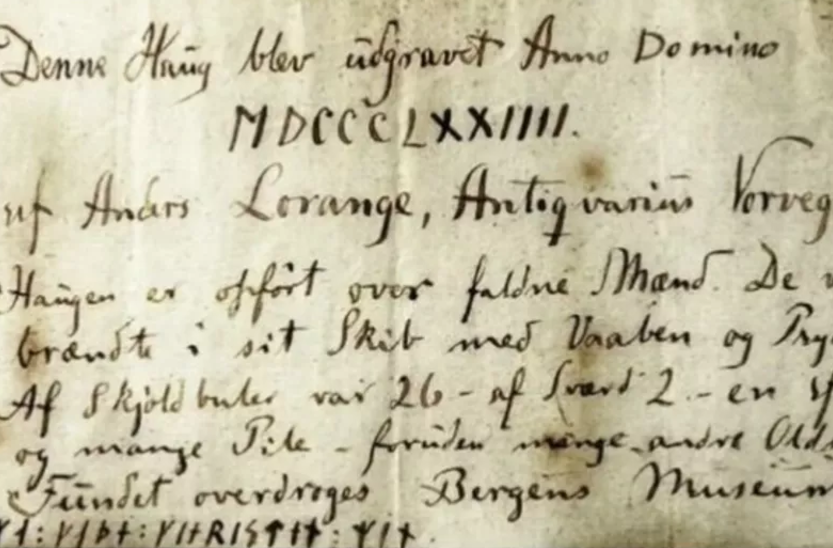 Denne Haug blev udgravet Anno Domino
MDCCCLXXIIII.
af Anders Lorange, Antiqvarius Norveg
Haugen er opført over faldne Mænd. De
brændte i sit Skib med Vaaben og Pry
Af Skjoldbuler var 26 - af Sværd 2 - en
og mange Pile - foruden mange andre Olds
Fundet overdroges Bergens Museum